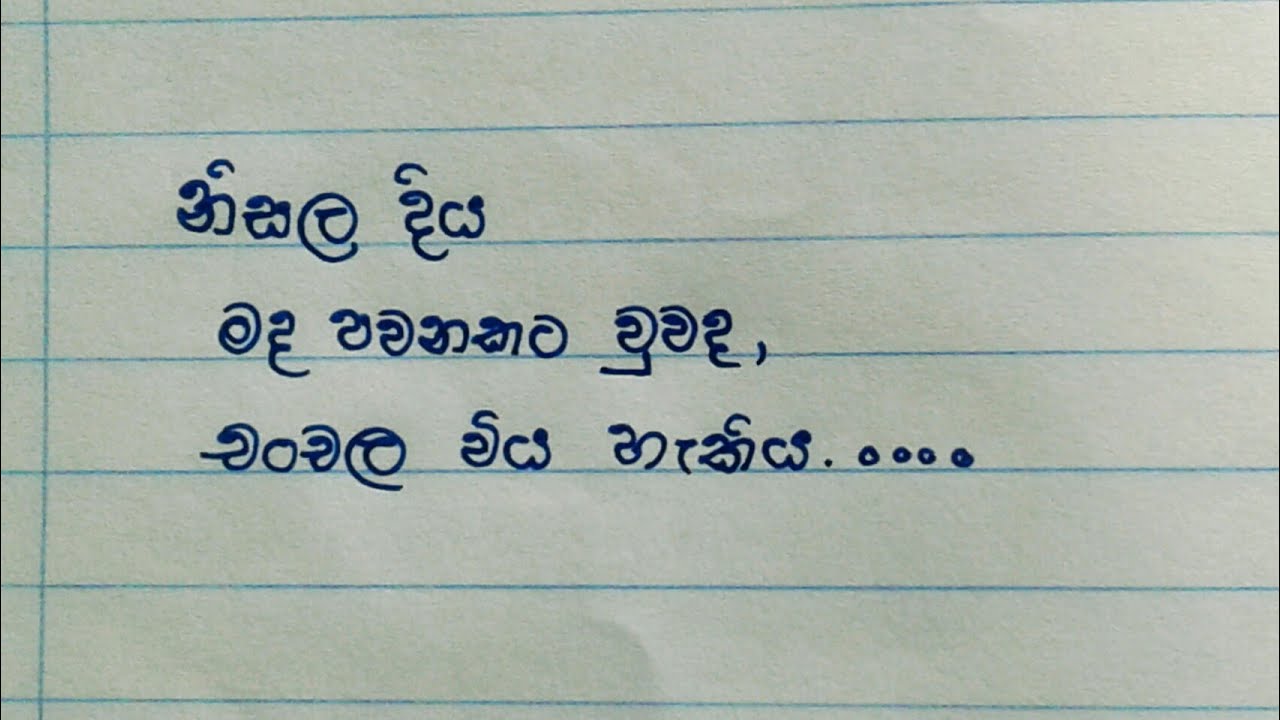 නිසල දිය
මද පවනකට වුවද,
චංචල විය හැකිය.....